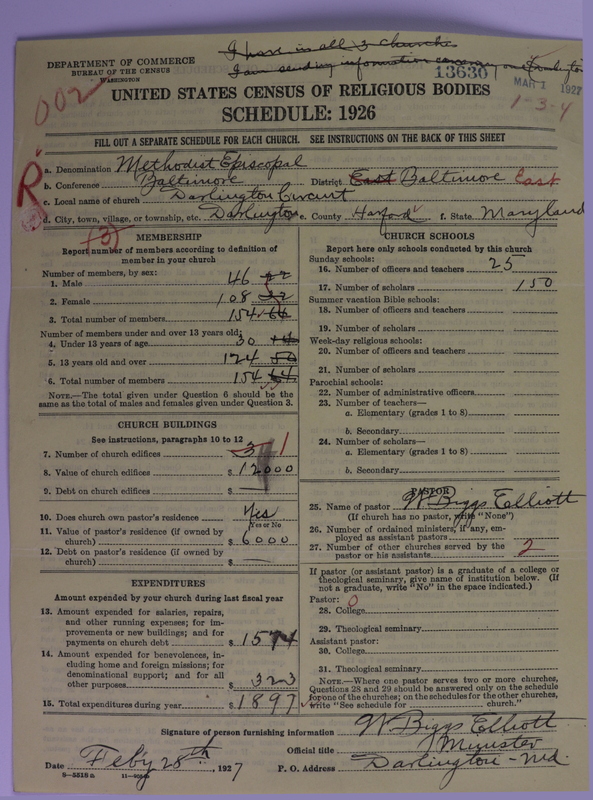 I pore in all 3 churches
DEPARTMENT OF COMMERCE
BUREAU OF THE CENSUS
WASHINGTON
I am sending information on Darlington
13630
MAR 1 1927
002
1-3-4
UNITED STATES CENSUS OF RELIGIOUS BODIES
SCHEDULE: 1926
FILL OUT A SEPARATE SCHEDULE FOR EACH CHURCH. SEE INSTRUCTIONS ON THE BACK OF THIS SHEET
R
a. Denomination Methodist Episcopal
b. Conference Baltimore District East Baltimore East
c. Local name of church Darlington Circuit
d. City, town, village, or township, etc. Darlington e. County Harford f. State Maryland
(3)
MEMBERSHIP
Report number of members according to definition of member in your church
Number of members, by sex:
1. Male 46
2. Female 108
3. Total number of members 154 66
Number of members under and over 13 years old:
4. Under 13 years of age 30 14
5. 13 years old and over 124 50
6. Total number of members 154 64
NOTE.—The total given under Question 6 should be the same as the total of males and females given under Question 3.
CHURCH BUILDINGS
See instructions, paragraphs 10 to 12
7. Number of church edifices 3 1
8. Value of church edifices $ 12000
9. Debt on church edifices $ —
10. Does church own pastor's residence Yes
Yes or No
11. Value of pastor's residence (if owned by church) $ 6000
12. Debt on pastor's residence (if owned by church) $ —
EXPENDITURES
Amount expended by your church during last fiscal year
13. Amount expended for salaries, repairs, and other running expenses; for improvements or new buildings; and for payments on church debt $ 1574
14. Amount expended for benevolences, including home and foreign missions; for denominational support; and for all other purposes $ 323
15. Total expenditures during year $ 1897
CHURCH SCHOOLS
Report here only schools conducted by this church
Sunday schools:
16. Number of officers and teachers 25
17. Number of scholars 150
Summer vacation Bible schools:
18. Number of officers and teachers
19. Number of scholars
Week-day religious schools:
20. Number of officers and teachers
21. Number of scholars
Parochial schools:
22. Number of administrative officers
23. Number of teachers—
a. Elementary (grades 1 to 8)
b. Secondary
24. Number of scholars—
a. Elementary (grades 1 to 8)
b. Secondary
PASTOR
25. Name of pastor W Biggs Elliott
(If church has no pastor, write "None")
26. Number of ordained ministers, if any, employed as assistant pastors
27. Number of other churches served by the pastor or his assistants 2
If pastor (or assistant pastor) is a graduate of a college or theological seminary, give name of institution below. (If not a graduate, write "No" in the space indicated.)
Pastor: 0
28. College
29. Theological seminary
Assistant pastor:
30. College
31. Theological seminary
NOTE.—Where one pastor serves two or more churches, Questions 28 and 29 should be answered only on the schedule for one of the churches; on the schedules for the other churches, write "See schedule for church."
Signature of person furnishing information W Biggs Elliott
Official title Minister
Date Feby 28th, 1927 P. O. Address Darlington - Md
8—5518 a